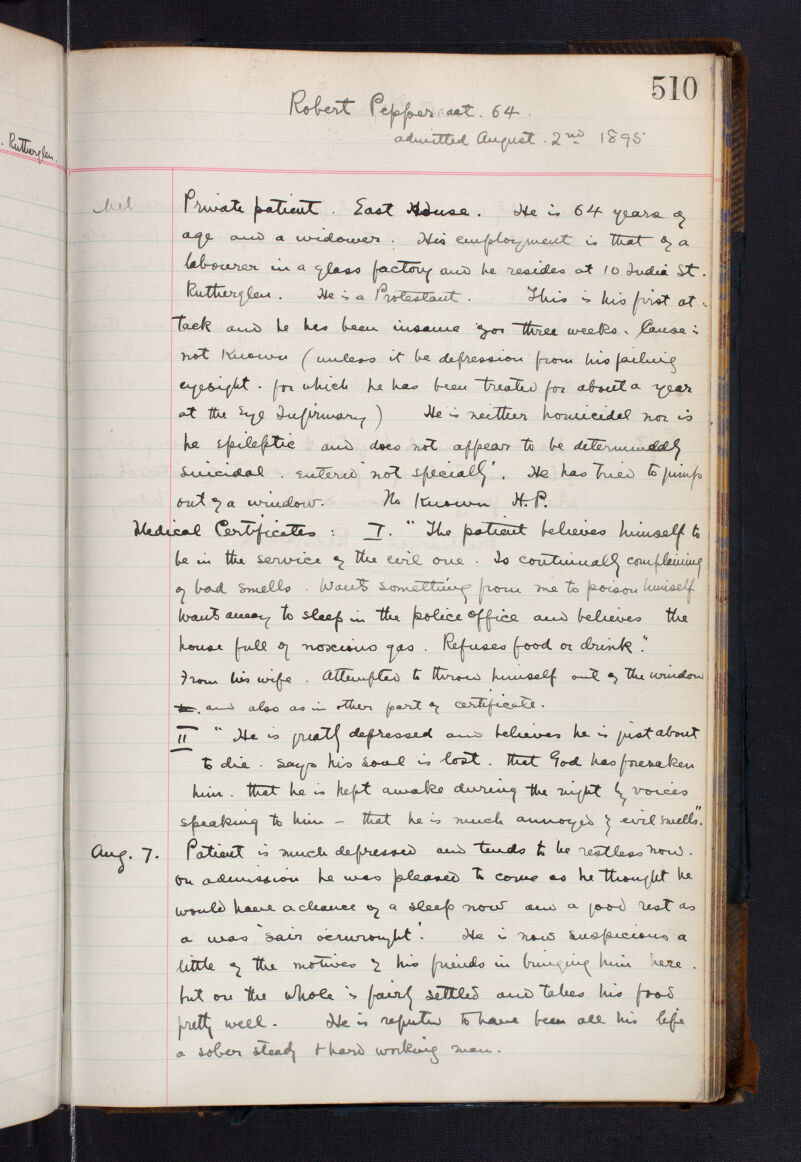 510
Robert Pepper aet. 64.
admitted August. 2nd 1895
. Rutherglen.
Mel
Private patient. East House. He is 64 years of
age and a widower. His employment is that of a
labourer in a glass factory and he resides at 10 India St.
Rutherglen. He is a Protestant. This is his first at-
tack and he has been insane for three weeks. Cause is
not known (unless it be depression from his failing
eyesight. for which he has been treated for about a year
at the Eye Infirmary) He is neither homicidal nor is
he epileptic and does not appear to be determinedly
suicidal. entered 'not specially'. He has tried to jump
out of a window. No known H.P.
Medical Certificates: I. "The patient believes himself to
be in the service of the evil one. Is continually complaining
of bad smells. Wants something from me to poison himself
wants away to sleep in the police office and believes the
house full of noxious gas. Refuses food or drink".
From his wife. Attempted to throw himself out of the window
and also as in other part of certificate.
II "He is greatly depressed and believes he is just about
to die. says his soul is lost. that God has forsaken
him. that he is kept awake during the night by voices
speaking to him - that he is much annoyed by evil smells".
Aug. 7. Patient is much depressed and tends to be restless now.
on admission he was pleased to come as he thought he
would have a chance of a sleep now and a good rest as
a was "sair oerwrought". He is now suspicious a
little of the motives of his friends in bringing him here.
but on the whole is fairly settled and takes his food
pretty well. He is reputed to have been all his life
a sober steady & hard working man.